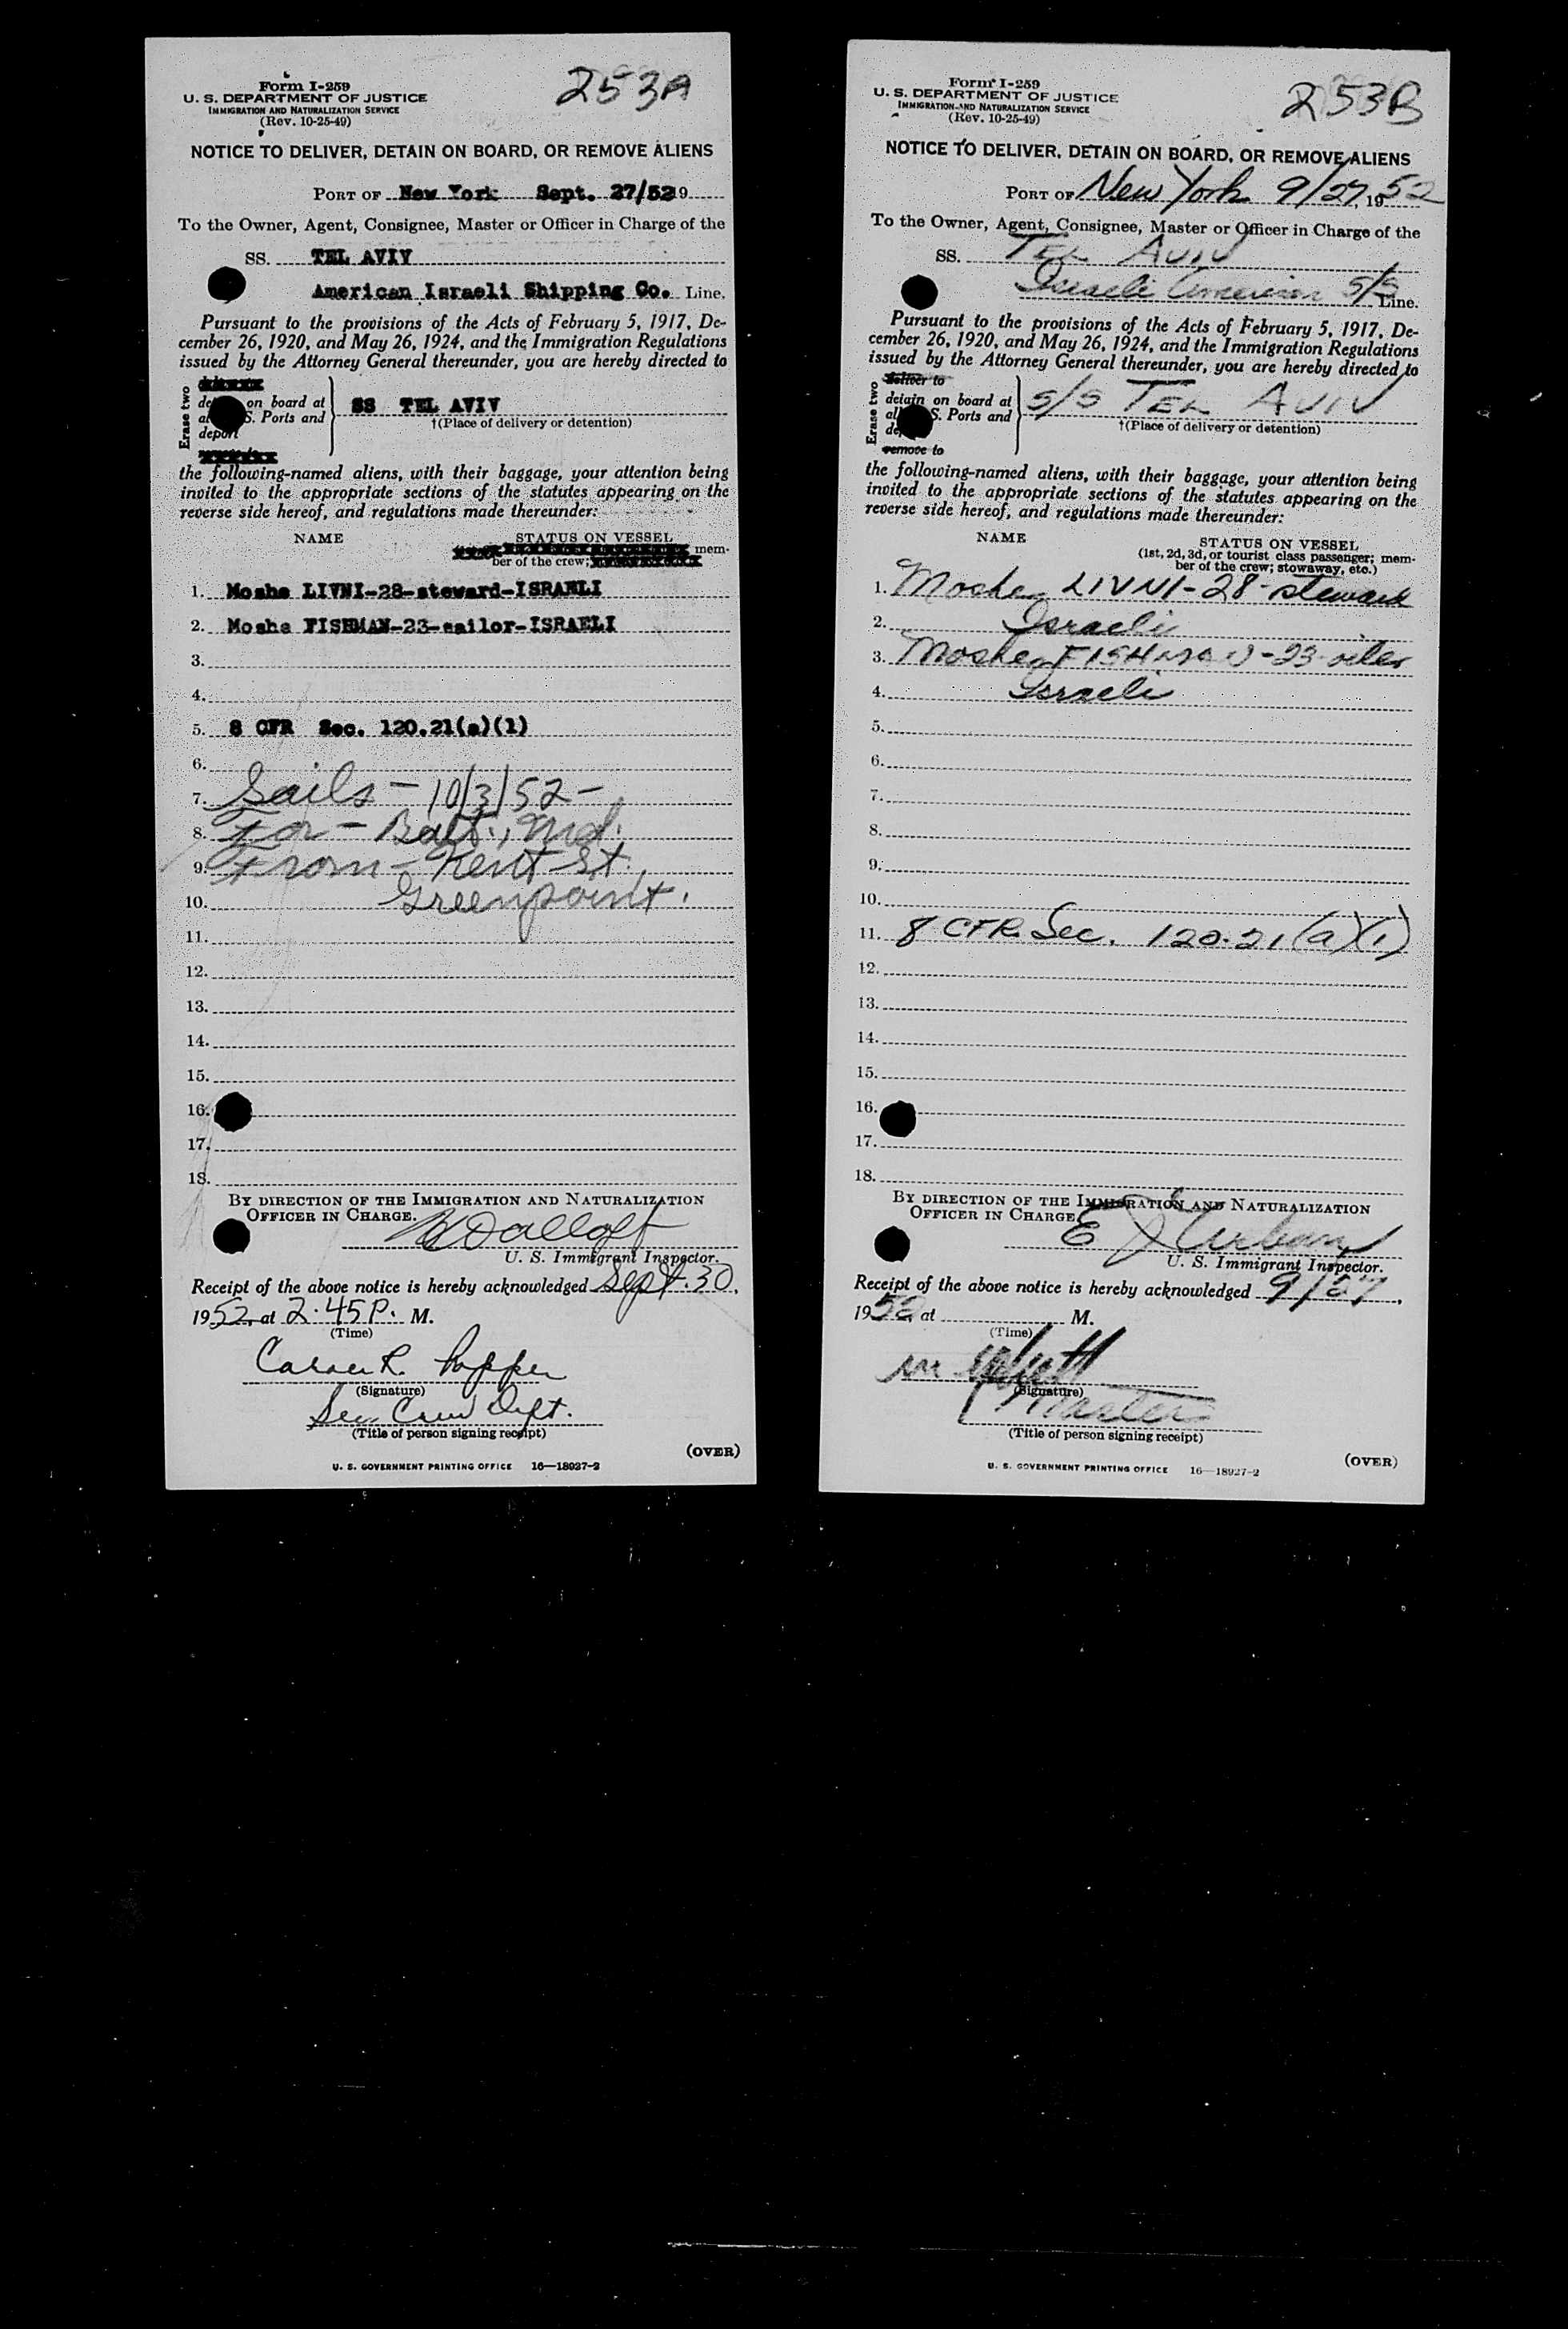 253A
Form I-259
U. S. DEPARTMENT OF JUSTICE
IMMIGRATION AND NATURALIZATION SERVICE
(Rev. 10-25-49)
NOTICE TO DELIVER, DETAIN ON BOARD, OR REMOVE ALIENS
PORT OF New York Sept. 27/52 19
To the Owner, Agent, Consignee, Master or Officer in Charge of the
SS. TEL AVIV
American Israeli Shipping Co. Line.
Pursuant to the provisions of the Acts of February 5, 1917, De-
cember 26, 1920, and May 26, 1924, and the Immigration Regulations
issued by the Attorney General thereunder, you are hereby directed to
Erase two
on board at
S. Ports and
deport
SS TEL AVIV
†(Place of delivery or detention)
the following-named aliens, with their baggage, your attention being
invited to the appropriate sections of the statutes appearing on the
reverse side hereof, and regulations made thereunder:
NAME STATUS ON VESSEL
mem-
ber of the crew;
1. Moshe LIVNI-28-steward-ISRAELI
2. Moshe FISHMAN-23-sailor-ISRAELI
3.
4.
5. 8 CFR Sec. 120.21(a)(1)
6.
7. Sails - 10/3/52 -
8. For - Balt., Md.
9. From - Kent St.
10. Greenpoint.
11.
12.
13.
14.
15.
16.
17.
18.
BY DIRECTION OF THE IMMIGRATION AND NATURALIZATION
OFFICER IN CHARGE.
U. S. Immigrant Inspector.
Receipt of the above notice is hereby acknowledged Sept. 30,
1952, at 2:45 P. M.
(Time)
(Signature)
Crew Dept.
(Title of person signing receipt)
(OVER)
U. S. GOVERNMENT PRINTING OFFICE 16—18927-2
253B
Form I-259
U. S. DEPARTMENT OF JUSTICE
IMMIGRATION AND NATURALIZATION SERVICE
(Rev. 10-25-49)
NOTICE TO DELIVER, DETAIN ON BOARD, OR REMOVE ALIENS
PORT OF New York 9/27, 1952
To the Owner, Agent, Consignee, Master or Officer in Charge of the
SS. TEL AVIV
Israeli American S/S Line.
Pursuant to the provisions of the Acts of February 5, 1917, De-
cember 26, 1920, and May 26, 1924, and the Immigration Regulations
issued by the Attorney General thereunder, you are hereby directed to
Erase two
deliver to
detain on board at
S. Ports and
remove to
S/S TEL AVIV
†(Place of delivery or detention)
the following-named aliens, with their baggage, your attention being
invited to the appropriate sections of the statutes appearing on the
reverse side hereof, and regulations made thereunder:
NAME STATUS ON VESSEL
(1st, 2d, 3d, or tourist class passenger; mem-
ber of the crew; stowaway, etc.)
1. Moshe LIVNI-28-steward
2. Israeli
3. Moshe FISHMAN-23-oiler
4. Israeli
5.
6.
7.
8.
9.
10.
11. 8 CFR. Sec. 120.21(a)(1)
12.
13.
14.
15.
16.
17.
18.
BY DIRECTION OF THE IMMIGRATION AND NATURALIZATION
OFFICER IN CHARGE.
E J Urban
U. S. Immigrant Inspector.
Receipt of the above notice is hereby acknowledged 9/27,
1952, at M.
(Time)
(Signature)
Master
(Title of person signing receipt)
(OVER)
U. S. GOVERNMENT PRINTING OFFICE 16—18927-2